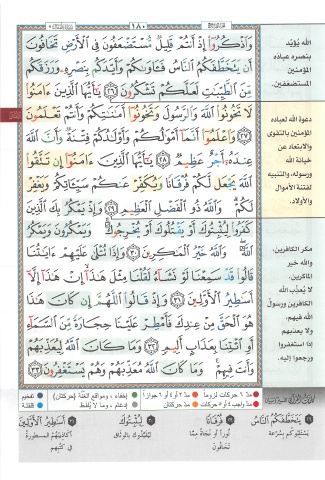 ١٨٠
وَاذْكُرُوا إِذْ أَنتُمْ قَلِيلٌ مُّسْتَضْعَفُونَ فِي الْأَرْضِ تَخَافُونَ
أَن يَتَخَطَّفَكُمُ النَّاسُ فَآوَاكُمْ وَأَيَّدَكُم بِنَصْرِهِ وَرَزَقَكُم
مِّنَ الطَّيِّبَاتِ لَعَلَّكُمْ تَشْكُرُونَ ﴿٢٦﴾ يَا أَيُّهَا الَّذِينَ آمَنُوا
لَا تَخُونُوا اللَّهَ وَالرَّسُولَ وَتَخُونُوا أَمَانَاتِكُمْ وَأَنتُمْ تَعْلَمُونَ
﴿٢٧﴾ وَاعْلَمُوا أَنَّمَا أَمْوَالُكُمْ وَأَوْلَادُكُمْ فِتْنَةٌ وَأَنَّ اللَّهَ
عِندَهُ أَجْرٌ عَظِيمٌ ﴿٢٨﴾ يَا أَيُّهَا الَّذِينَ آمَنُوا إِن تَتَّقُوا
اللَّهَ يَجْعَل لَّكُمْ فُرْقَانًا وَيُكَفِّرْ عَنكُمْ سَيِّئَاتِكُمْ وَيَغْفِرْ
لَكُمْ وَاللَّهُ ذُو الْفَضْلِ الْعَظِيمِ ﴿٢٩﴾ وَإِذْ يَمْكُرُ بِكَ الَّذِينَ
كَفَرُوا لِيُثْبِتُوكَ أَوْ يَقْتُلُوكَ أَوْ يُخْرِجُوكَ وَيَمْكُرُونَ وَيَمْكُرُ
اللَّهُ وَاللَّهُ خَيْرُ الْمَاكِرِينَ ﴿٣٠﴾ وَإِذَا تُتْلَى عَلَيْهِمْ آيَاتُنَا
قَالُوا قَدْ سَمِعْنَا لَوْ نَشَاءُ لَقُلْنَا مِثْلَ هَذَا إِنْ هَذَا إِلَّا
أَسَاطِيرُ الْأَوَّلِينَ ﴿٣١﴾ وَإِذْ قَالُوا اللَّهُمَّ إِن كَانَ هَذَا
هُوَ الْحَقَّ مِنْ عِندِكَ فَأَمْطِرْ عَلَيْنَا حِجَارَةً مِّنَ السَّمَاءِ
أَوِ ائْتِنَا بِعَذَابٍ أَلِيمٍ ﴿٣٢﴾ وَمَا كَانَ اللَّهُ لِيُعَذِّبَهُمْ
وَأَنتَ فِيهِمْ وَمَا كَانَ اللَّهُ مُعَذِّبَهُمْ وَهُمْ يَسْتَغْفِرُونَ ﴿٣٣﴾
الله يُؤيّد
بنصره عباده
المؤمنين
المستضعفين.
دعوة الله لعباده
المؤمنين بالتقوى
والابتعاد عن
خيانة الله
ورسوله، والتنبيه
لفتنة الأموال
والأولاد.
مكر الكافرين،
والله خير
الماكرين.
لا يُعذّب الله
الكافرين ورسولُ
الله فيهم،
ولا يعذبهم
إذا استغفروا
ورجعوا إليه.
مدّ ٦ حركات لزوماً
مدّ ٢ أو ٤ أو ٦ جوازاً
إخفاء، ومواقع الغُنّة (حركتان)
تفخيم
مدّ واجب ٤ أو ٥ حركات
مدّ حركتان
إدغام، وما لا يُلفظ
قلقلة
يَتَخَطَّفَكُمُ النَّاسُ
يَسْتَلِبُوكُم بِسُرعَة
فُرْقَانًا
نُوراً أو نَجَاةً مِمَّا
تَخَافُونَ
لِيُثْبِتُوكَ
لِيُقَيِّدُوكَ بِالوِثَاقِ
أَسَاطِيرُ الْأَوَّلِينَ
أَكَاذِيبُهُمُ المَسطُورَة
فِي كُتُبِهِم